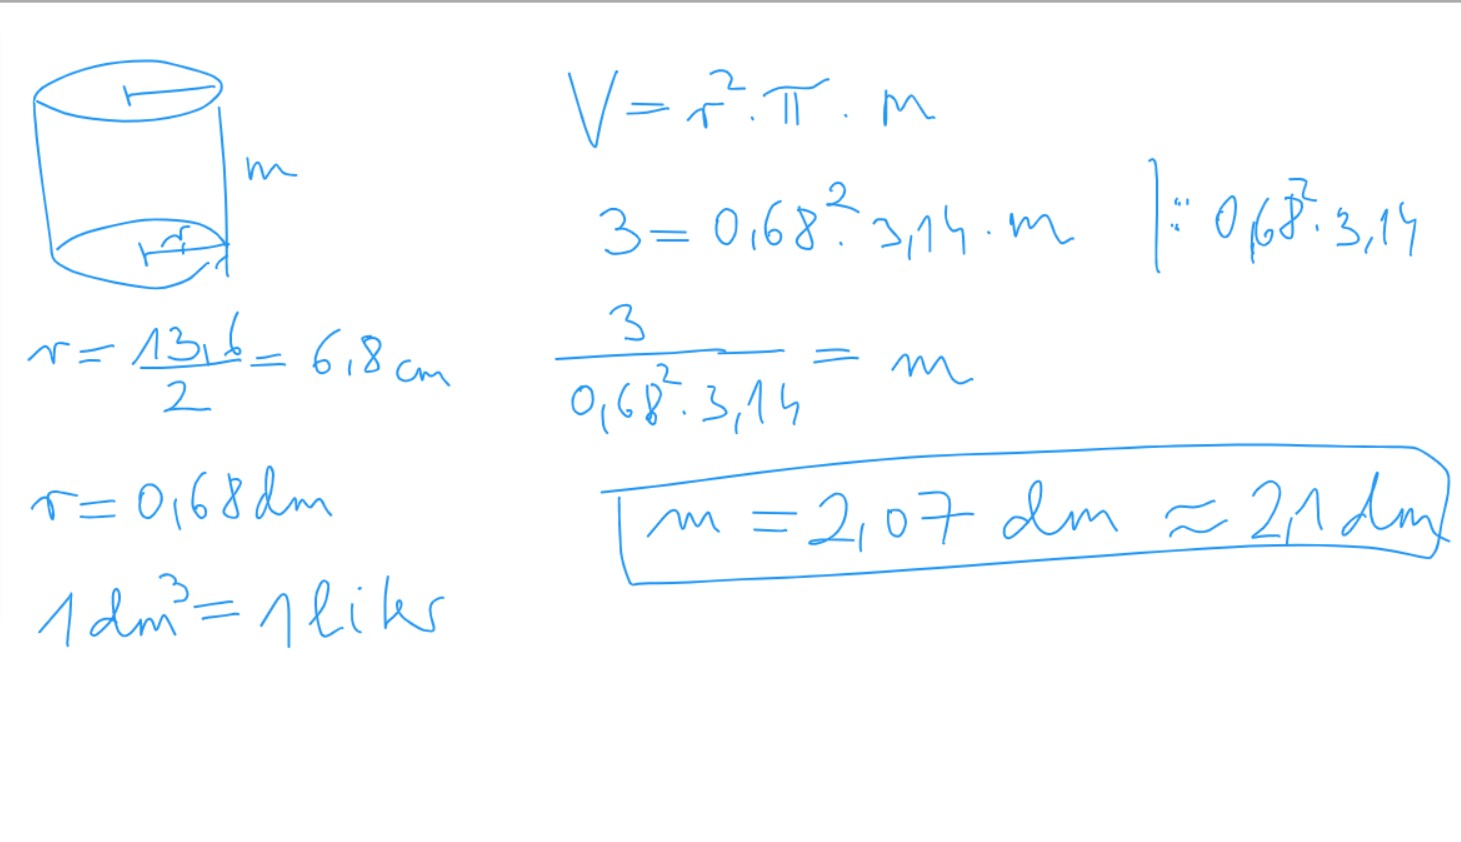 m
r
r = 13,6/2 = 6,8 cm
r = 0,68 dm
1 dm³ = 1 liter
V = r² · π · m
3 = 0,68² · 3,14 · m |: 0,68² · 3,14
3/(0,68² · 3,14) = m
m = 2,07 dm ≈ 2,1 dm